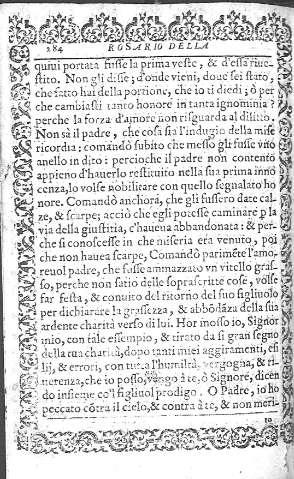 284 ROSARIO DELLA
quiui portata fusse la prima veste, & d'essa riue-
stito. Non gli disse; d'onde vieni, doue sei stato,
che fatto hai della portione, che io ti diedi; ò per
che cambiasti tanto honore in tanta ignominia?
perche la forza d'amore non risguarda al dilitto.
Non sà il padre, che cosa sia l'indugio della mise
ricordia: comandò subito che messo gli fusse vno
anello in dito: percioche il padre non contento
appieno d'hauerlo restituito nella sua prima inno
cenza, lo volse nobilitare con quello segnalato ho
nore. Comandò anchora, che gli fussero date cal
ze, & scarpe; acciò che egli potesse caminare p la
via della giustitia, c'haueua abbandonata: & per-
che si conoscesse in che miseria era venuto, poi
che non hauea scarpe, Comandò parimēte l'amo-
reuol padre, che fusse ammazzato vn vitello gras-
so, perche non satio delle soprascritte cose, volse
far festa, & conuito del ritorno del suo figliuolo
per dichiarare la grassezza, & abbōdāza della sua
ardente charità verso di lui. Hor mosso io, Signor
mio, con tale essempio, & tirato da sì gran segno
della tua charità, dopo tanti miei aggiramenti, es
lij, & errori, con tutta l'humiltà, vergogna, & ri-
uerenza, che io posso, vengo à te, ò Signore, dicen
do insieme co'l figliuol prodigo. O Padre, io ho
peccato cōtra il cielo, & contra à te, & non meri-